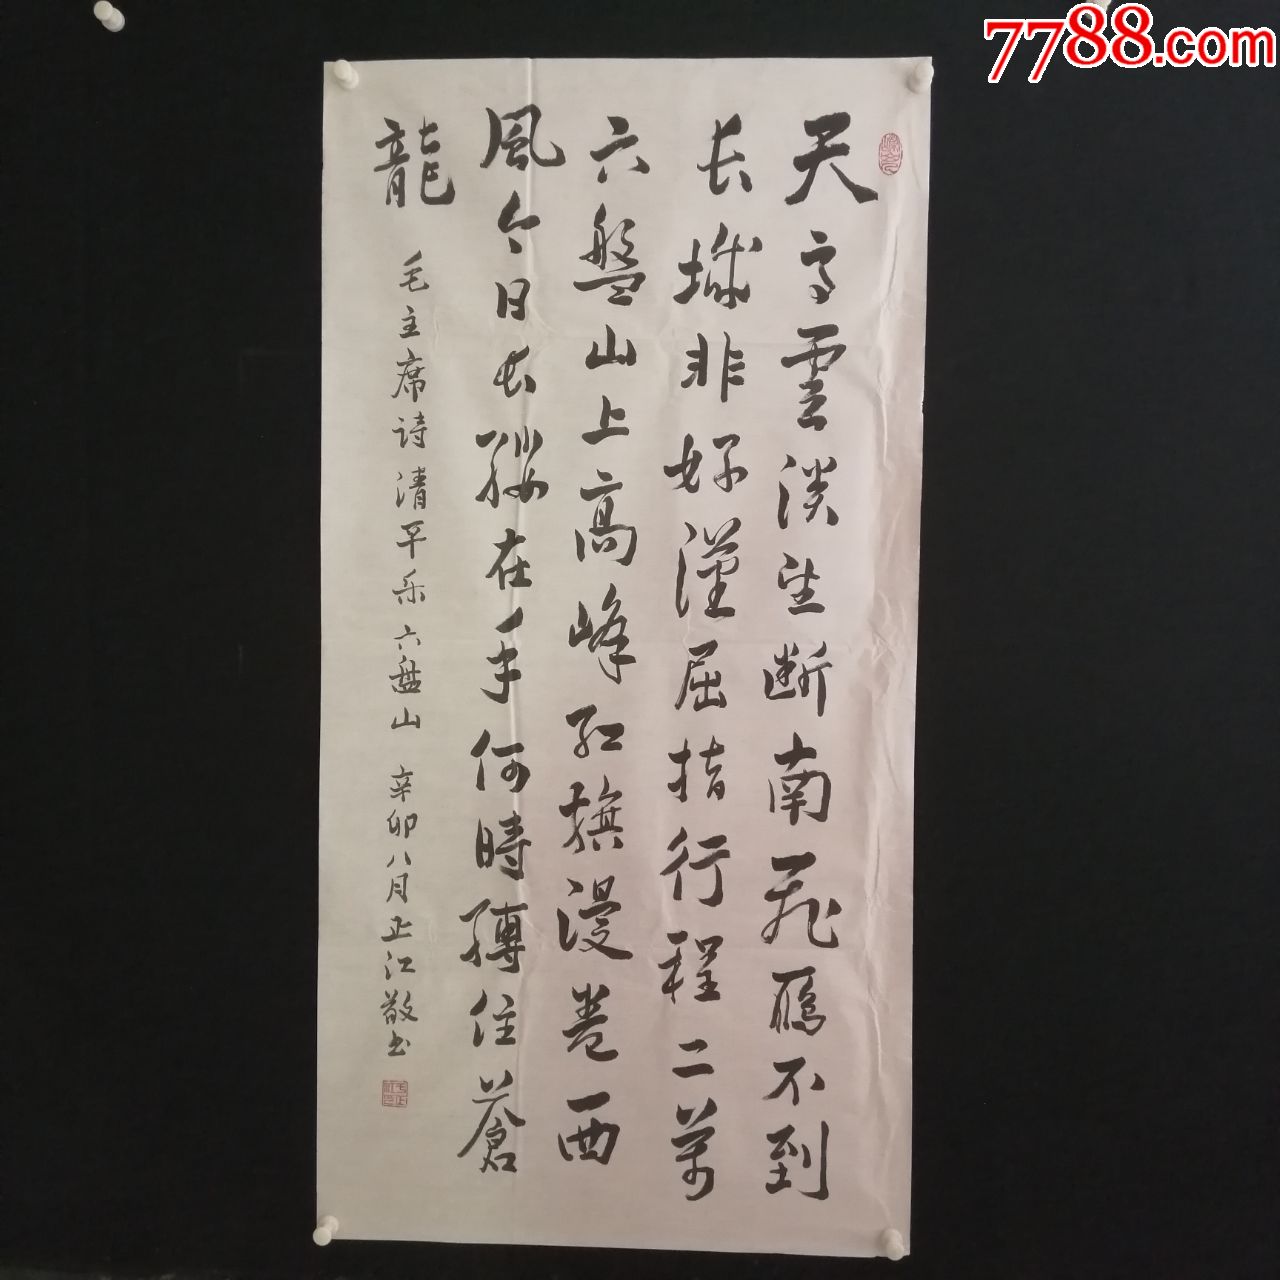 7788.com
天高雲淡望断南飛雁不到
長城非好漢屈指行程二萬
六盤山上高峰紅旗漫卷西
風今日長纓在手何時縛住蒼
龍
毛主席诗清平乐六盘山 辛卯八月正江敬书